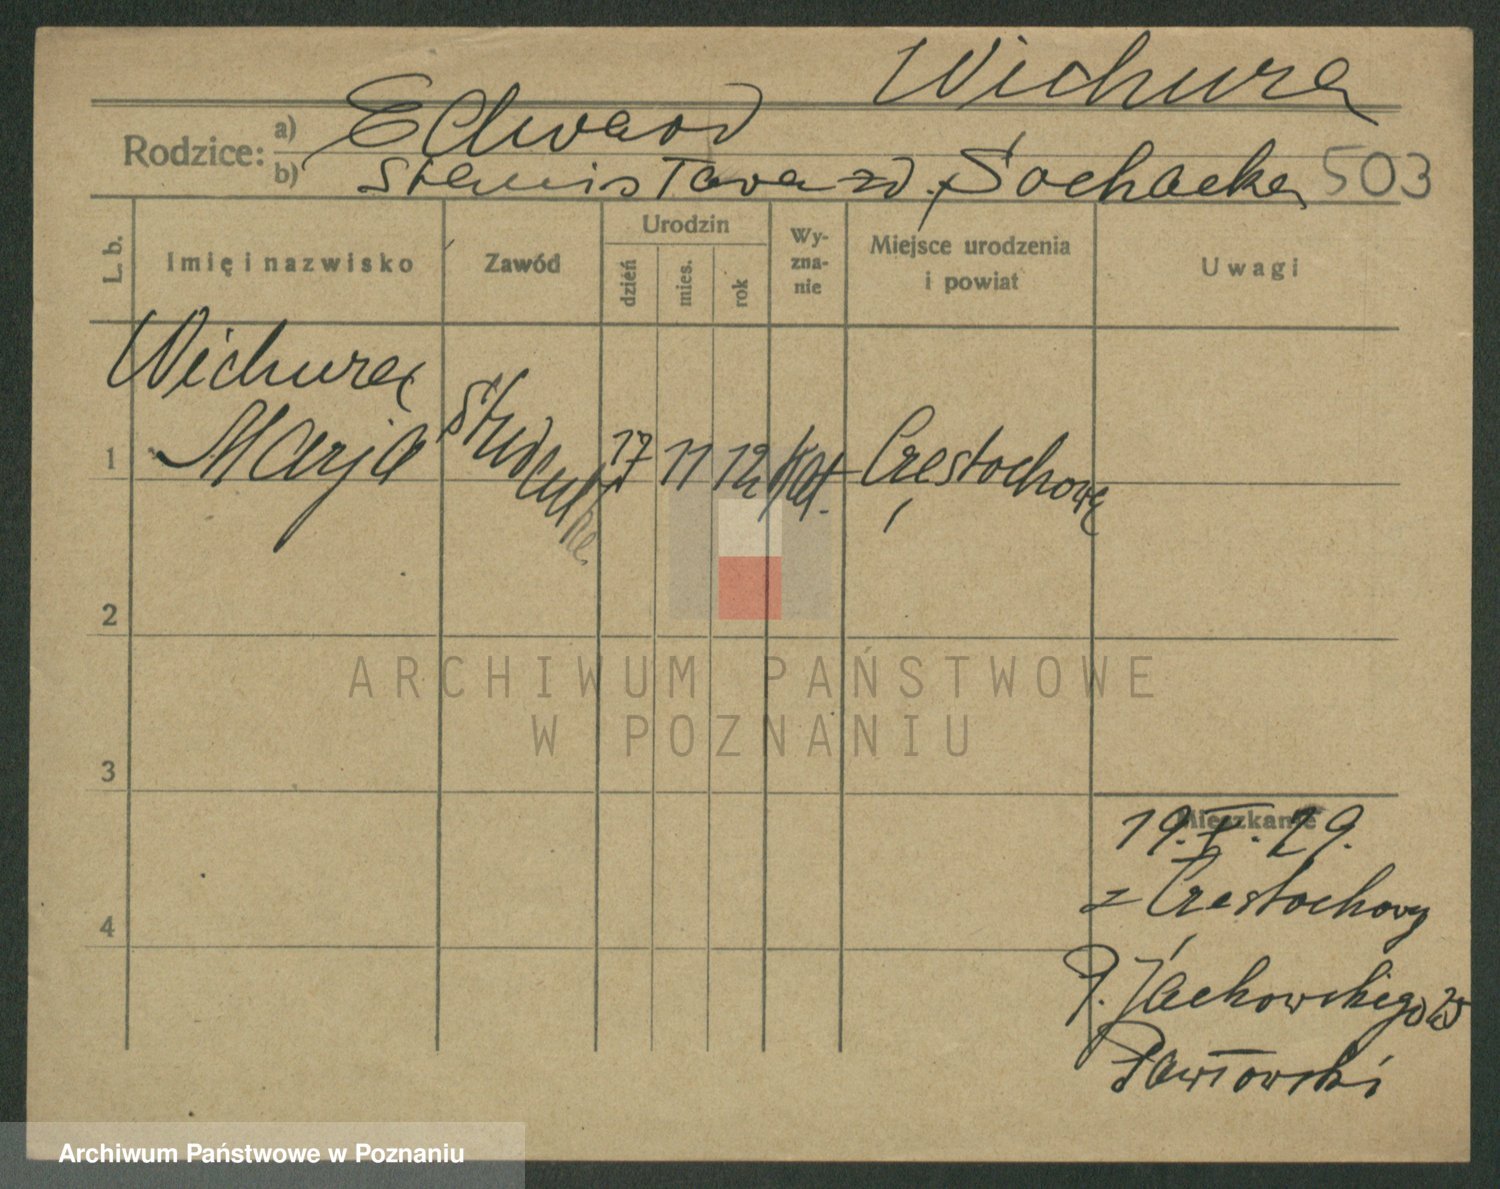 Wichura
Rodzice: a) Edward
b) Stanisława zd. Sochacka 503
L. b. Imię i nazwisko Zawód Urodzin dzień mies. rok Wy-zna-nie Miejsce urodzenia i powiat Uwagi
Wichura
1 Marja Studentka 17 11 12 kat. Częstochowa
2
ARCHIWUM PAŃSTWOWE
W POZNANIU
3
Mieszkanie
19. 29.
z Częstochowy
4
P. Jackowskiego 25
Pawłowski
Archiwum Państwowe w Poznaniu